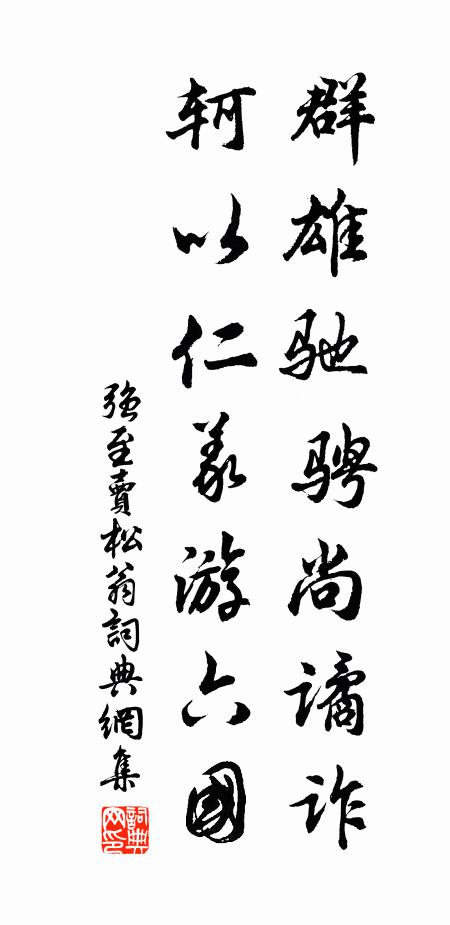 群雄驰骋尚谲诈
轲以仁义游六國
强至賣松翁詞典網集
詞典网印